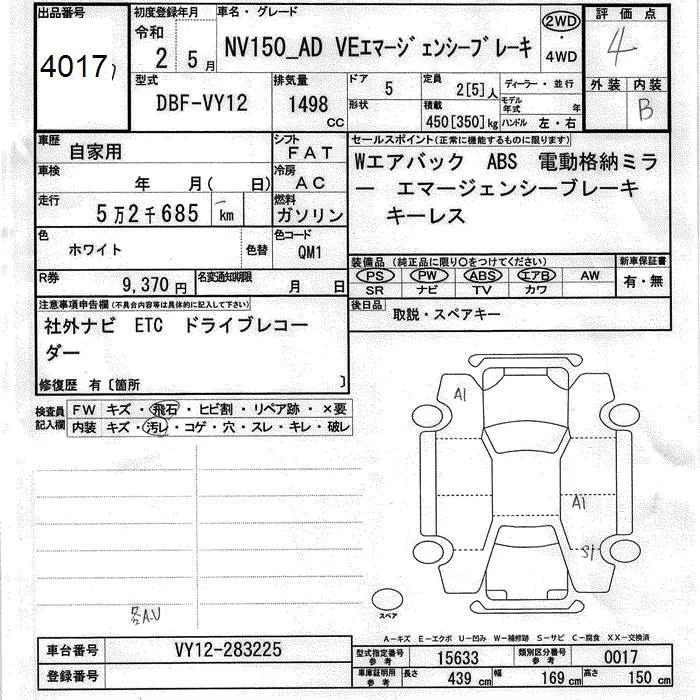 出品番号 初度登録年月 車名・グレード 2WD 評価点
令和 2年 5月 NV150_AD VEエマージェンシーブレーキ ・ 4WD 4
4017
型式 排気量 ドア 5 定員 2[5]人 ディーラー・並行 外装 内装
DBF-VY12 1498 cc 形状 積載 450[350]kg モデル年式 年 ハンドル 左・右 B
車歴 自家用 シフト FAT セールスポイント(正常に機能するものに限ります)
車検 年 月( 日) 冷房 AC Wエアバック ABS 電動格納ミラ
走行 5万2千685 km 燃料 ガソリン ー エマージェンシーブレーキ
キーレス
色 ホワイト 色替 色コード QM1
装備品 (純正品に限り○をつけてください) 新車保証書
PS PW ABS エアB AW 有・無
SR ナビ TV カワ
R券 9,370円 名変通知期限 月 日
後日品 取説・スペアキー
注意事項申告欄(不具合内容等は具体的に記入して下さい)
社外ナビ ETC ドライブレコー
ダー
修復歴 有〔箇所 〕
検査員記入欄 FW キズ・飛石・ヒビ割・リペア跡・×要
内装 キズ・汚レ・コゲ・穴・スレ・キレ・破レ
A1
A1
S1
スペア
各A.U
A-キズ E-エクボ U-凹み W-補修跡 S-サビ C-腐食 XX-交換済
車台番号 VY12-283225 型式指定番号 参考 15633 類別区分番号 参考 0017
登録番号 車庫証明用 参考 長さ 439cm 幅 169cm 高さ 150cm